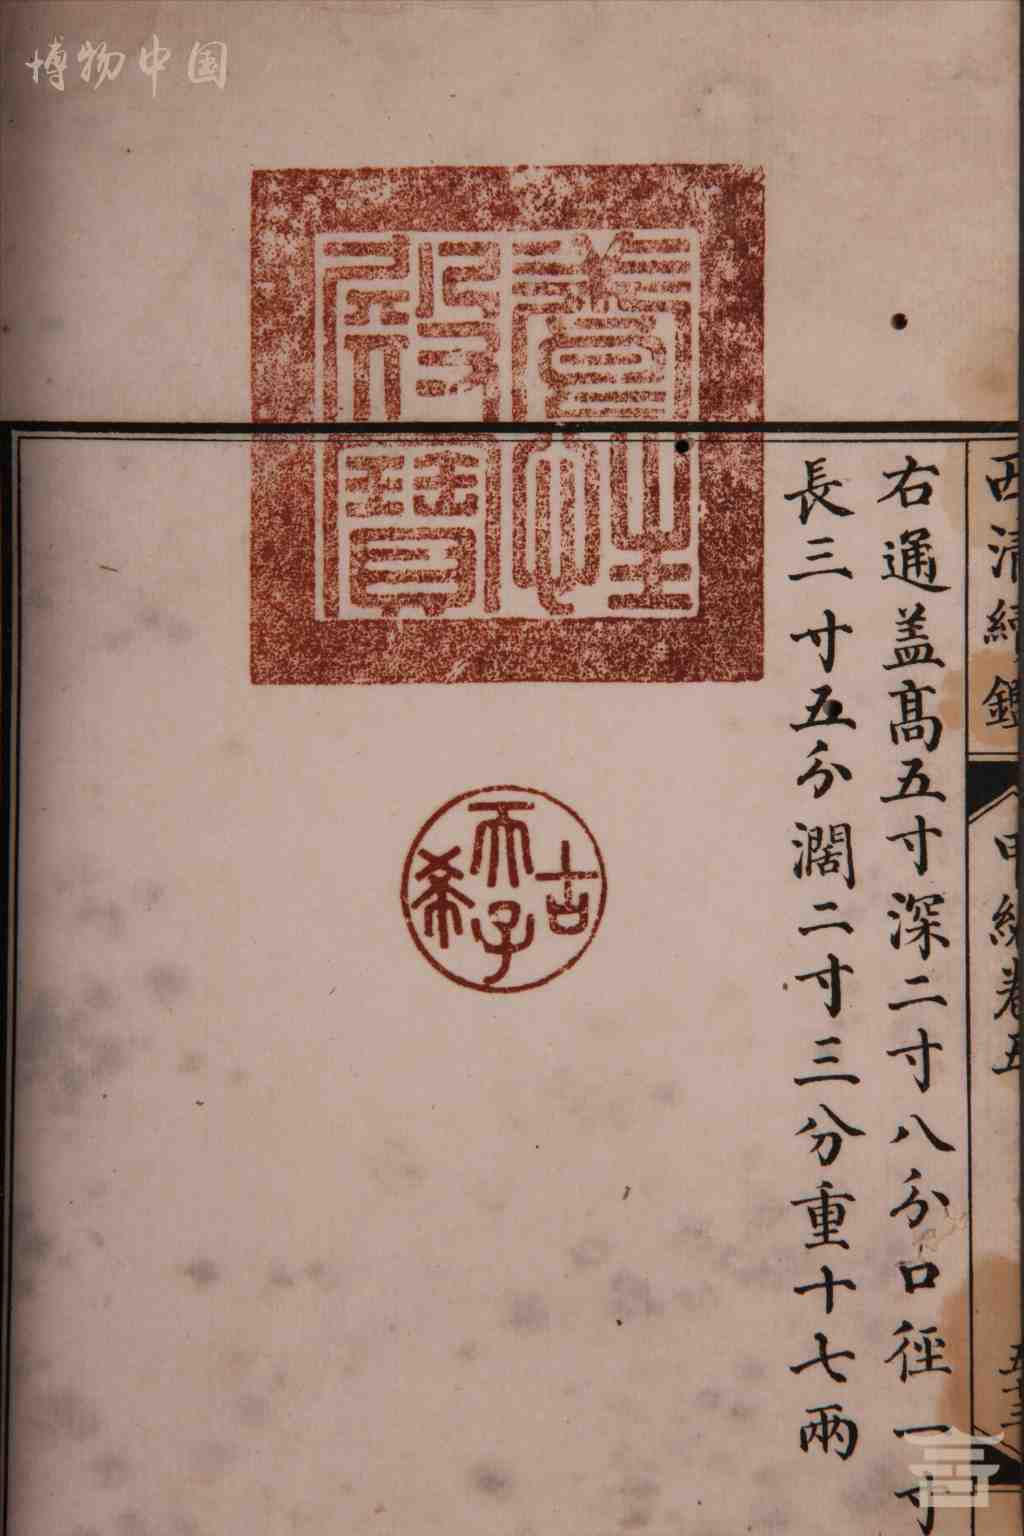 博物中国
西清續鑑
甲編卷五
五十三
右通盖高五寸深二寸八分口徑一寸
長三寸五分濶二寸三分重十七兩
養性殿寶
古希天子